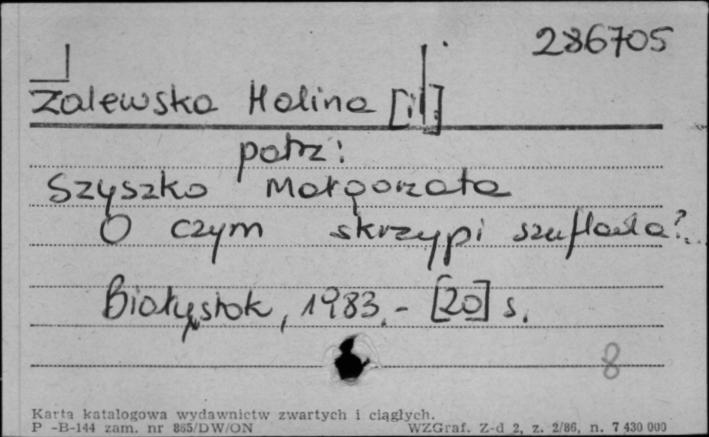 286705
Zalewska Halina [il.]
patrz:
Szyszko Małgorzata
O czym skrzypi szuflada?
Białystok, 1983. - [20] s.
8
Karta katalogowa wydawnictw zwartych i ciągłych.
P -B-144 zam. nr 865/DW/ON WZGraf. Z-d 2, z. 2/86, n. 7 430 000